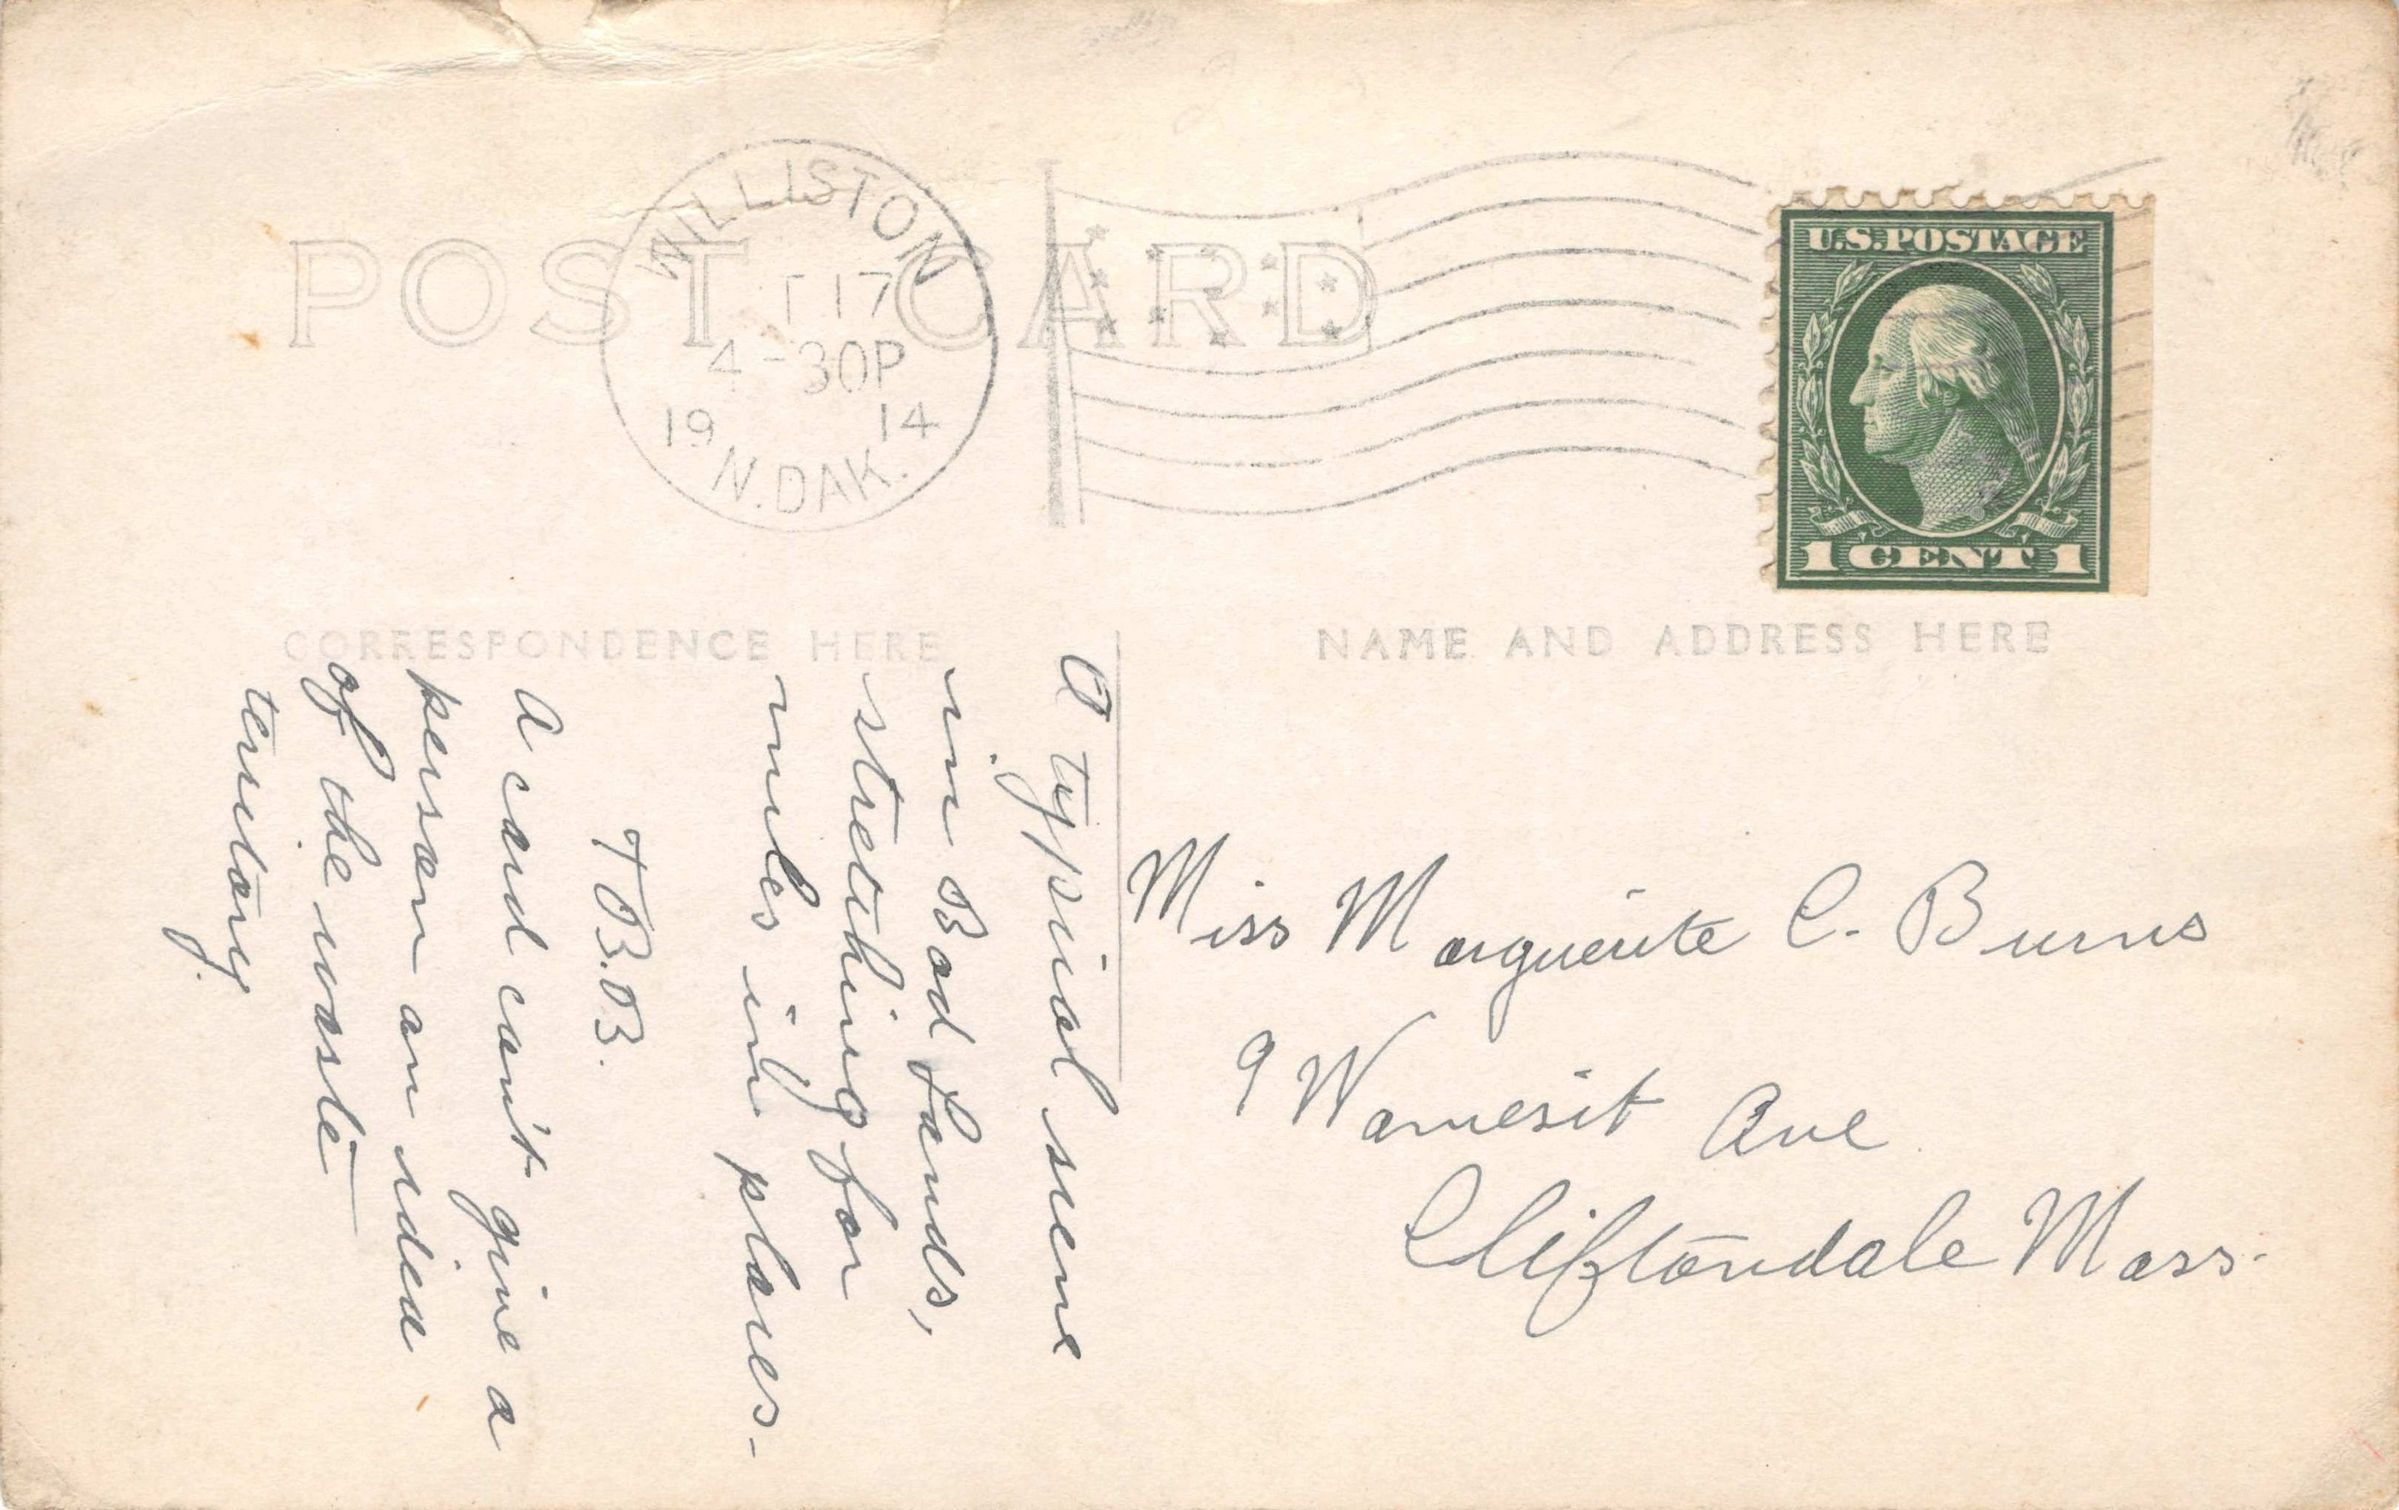 POST CARD
WILLISTON
T 17
4-30P
19 14
N. DAK.
U.S. POSTAGE
1 CENT 1
CORRESPONDENCE HERE
NAME AND ADDRESS HERE
A typical scene
in Bad Lands,
stretching for
miles in places-
T.B.B.
A card can't give a
person an idea
of the waste
territory.
Miss Marguerite C. Burns
9 Wamesit Ave
Cliftondale Mass.